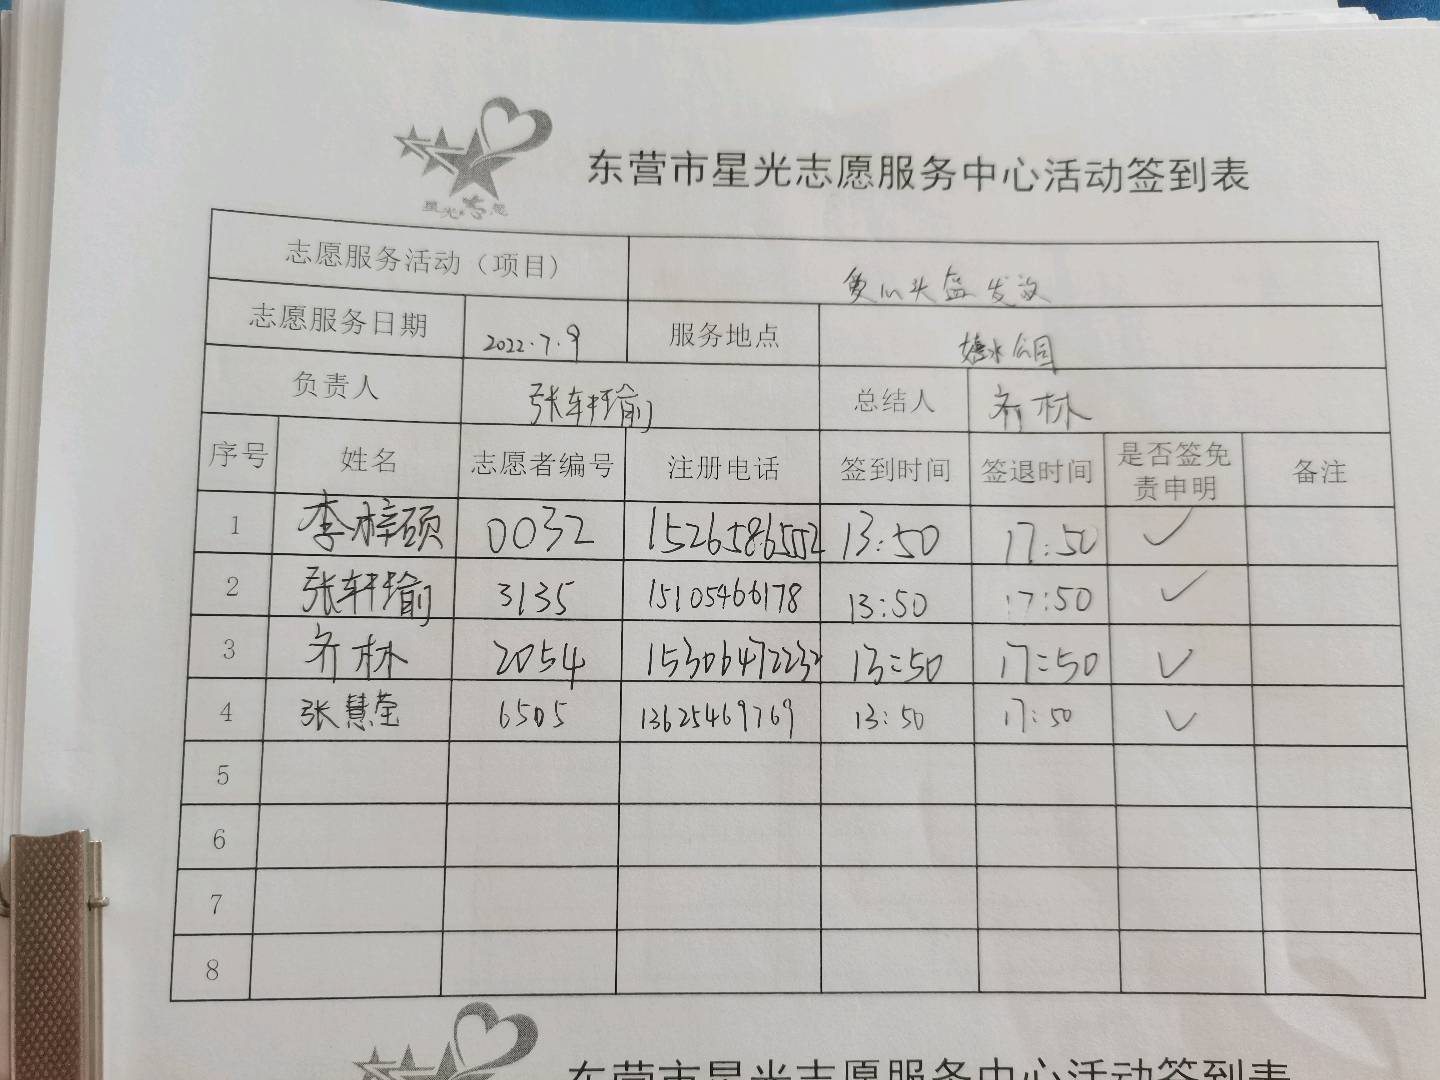 星光志愿
东营市星光志愿服务中心活动签到表
志愿服务活动（项目） 爱心头盔发放
志愿服务日期 2022.7.9 服务地点 嬉水公园
负责人 张轩瑜 总结人 齐林
序号 姓名 志愿者编号 注册电话 签到时间 签退时间 是否签免责申明 备注
1 李梓硕 0032 15265865552 13:50 17:50 ✓
2 张轩瑜 3135 15105466178 13:50 17:50 ✓
3 齐林 2054 15306472232 13:50 17:50 ✓
4 张慧莹 6505 13625469769 13:50 17:50 ✓
5
6
7
8
东营市星光志愿服务中心活动签到表